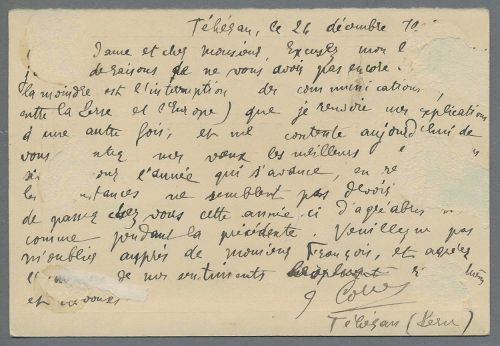 Téhéran, ce 26 décembre
Dame et cher monsieur Excusez mon
de raisons de ne vous avoir pas encore
la moindre est l'interruption des communications,
entre la Perse et l'Europe) que je renvoie mes explications
à une autre fois, et me contente aujourd'hui de
vous mes vœux les meilleurs
l'année qui s'avance, en
ne semblent pas devoir
de passer chez vous cette année-ci d'agréables
comme pendant la précédente. Veuillez ne pas
m'oublier auprès de monsieur François, et agréez
de nos sentiments
et
Téhéran (Perse)